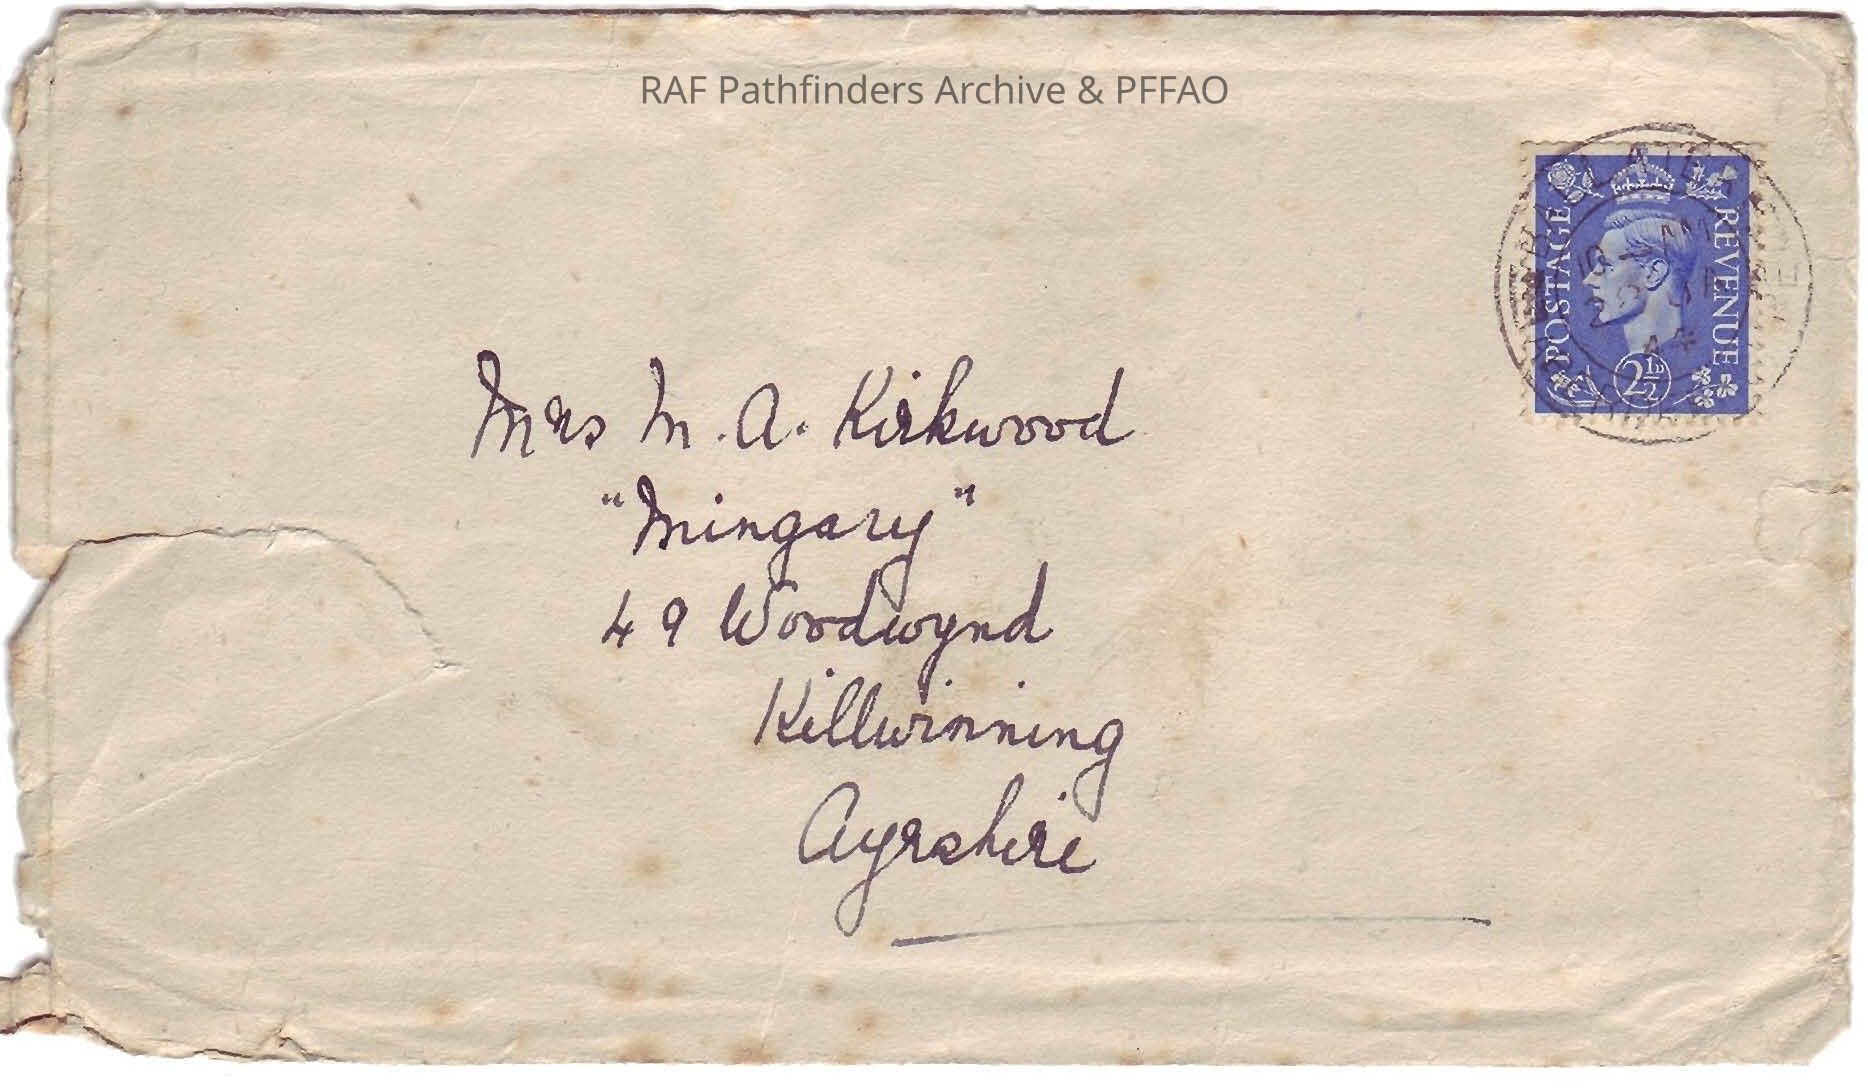 RAF Pathfinders Archive & PFFAO
POSTAGE
REVENUE
2½D
AM
44
Mrs M. A. Kirkwood
"Mingary"
49 Woodwynd
Killwinning
Ayrshire